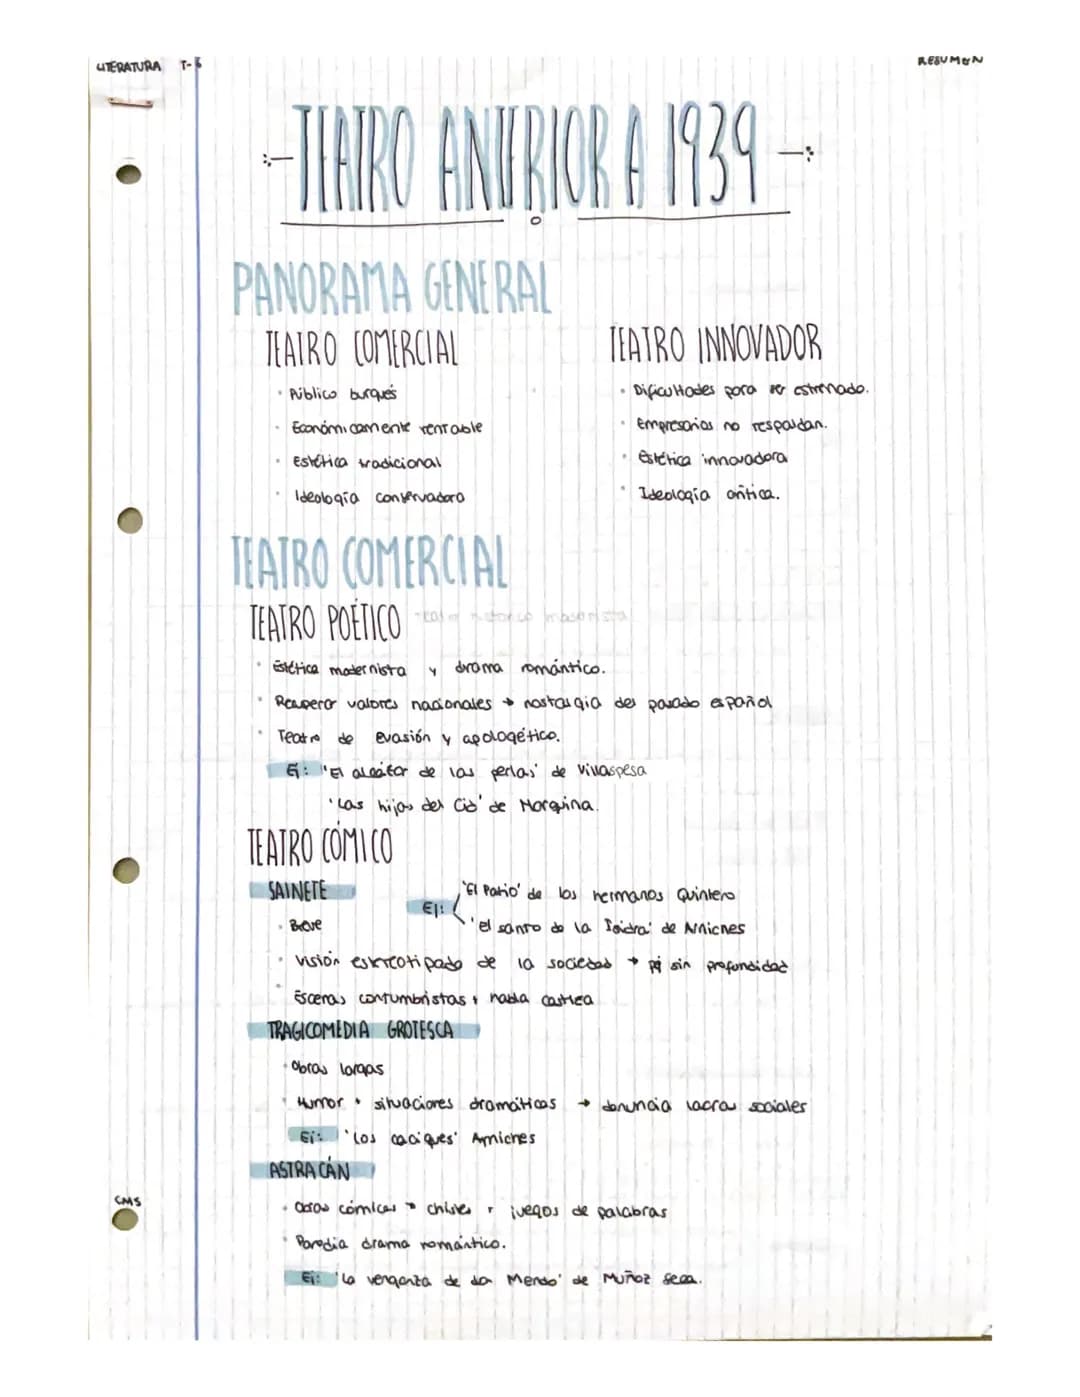 LITERATURA T-6
RESUMEN
TEATRO ANTERIOR A 1939
PANORAMA GENERAL
TEATRO COMERCIAL
· Público burgués
· Económicamente rentable
· Estética tradicional
· Ideología conservadora
TEATRO INNOVADOR
· Dificultades para ser estrenado.
· Empresarios no respaldan.
· Estética innovadora
· Ideología crítica.
TEATRO COMERCIAL
TEATRO POÉTICO
· Estética modernista y drama romántico.
· Recuperar valores nacionales → nostalgia del pasado español
· Teatro de evasión y apologético.
Ej: 'El alcázar de las perlas' de Villaespesa
'Las hijas del Cid' de Marquina.
TEATRO CÓMICO
SAINETE
Ej: 'El Patio' de los hermanos Quintero
'el santo de la Isidra' de Arniches
· Breve
· Visión estereotipada de la sociedad → pj sin profundidad
· Escenas costumbristas + habla castiza
TRAGICOMEDIA GROTESCA
· Obras largas
· Humor + situaciones dramáticas → denuncia lacras sociales
Ej: 'Los caciques' Arniches
ASTRACÁN
· Obras cómicas → chistes + juegos de palabras
· Parodia drama romántico.
Ej: 'La venganza de don Mendo' de Muñoz Seca.
CMS